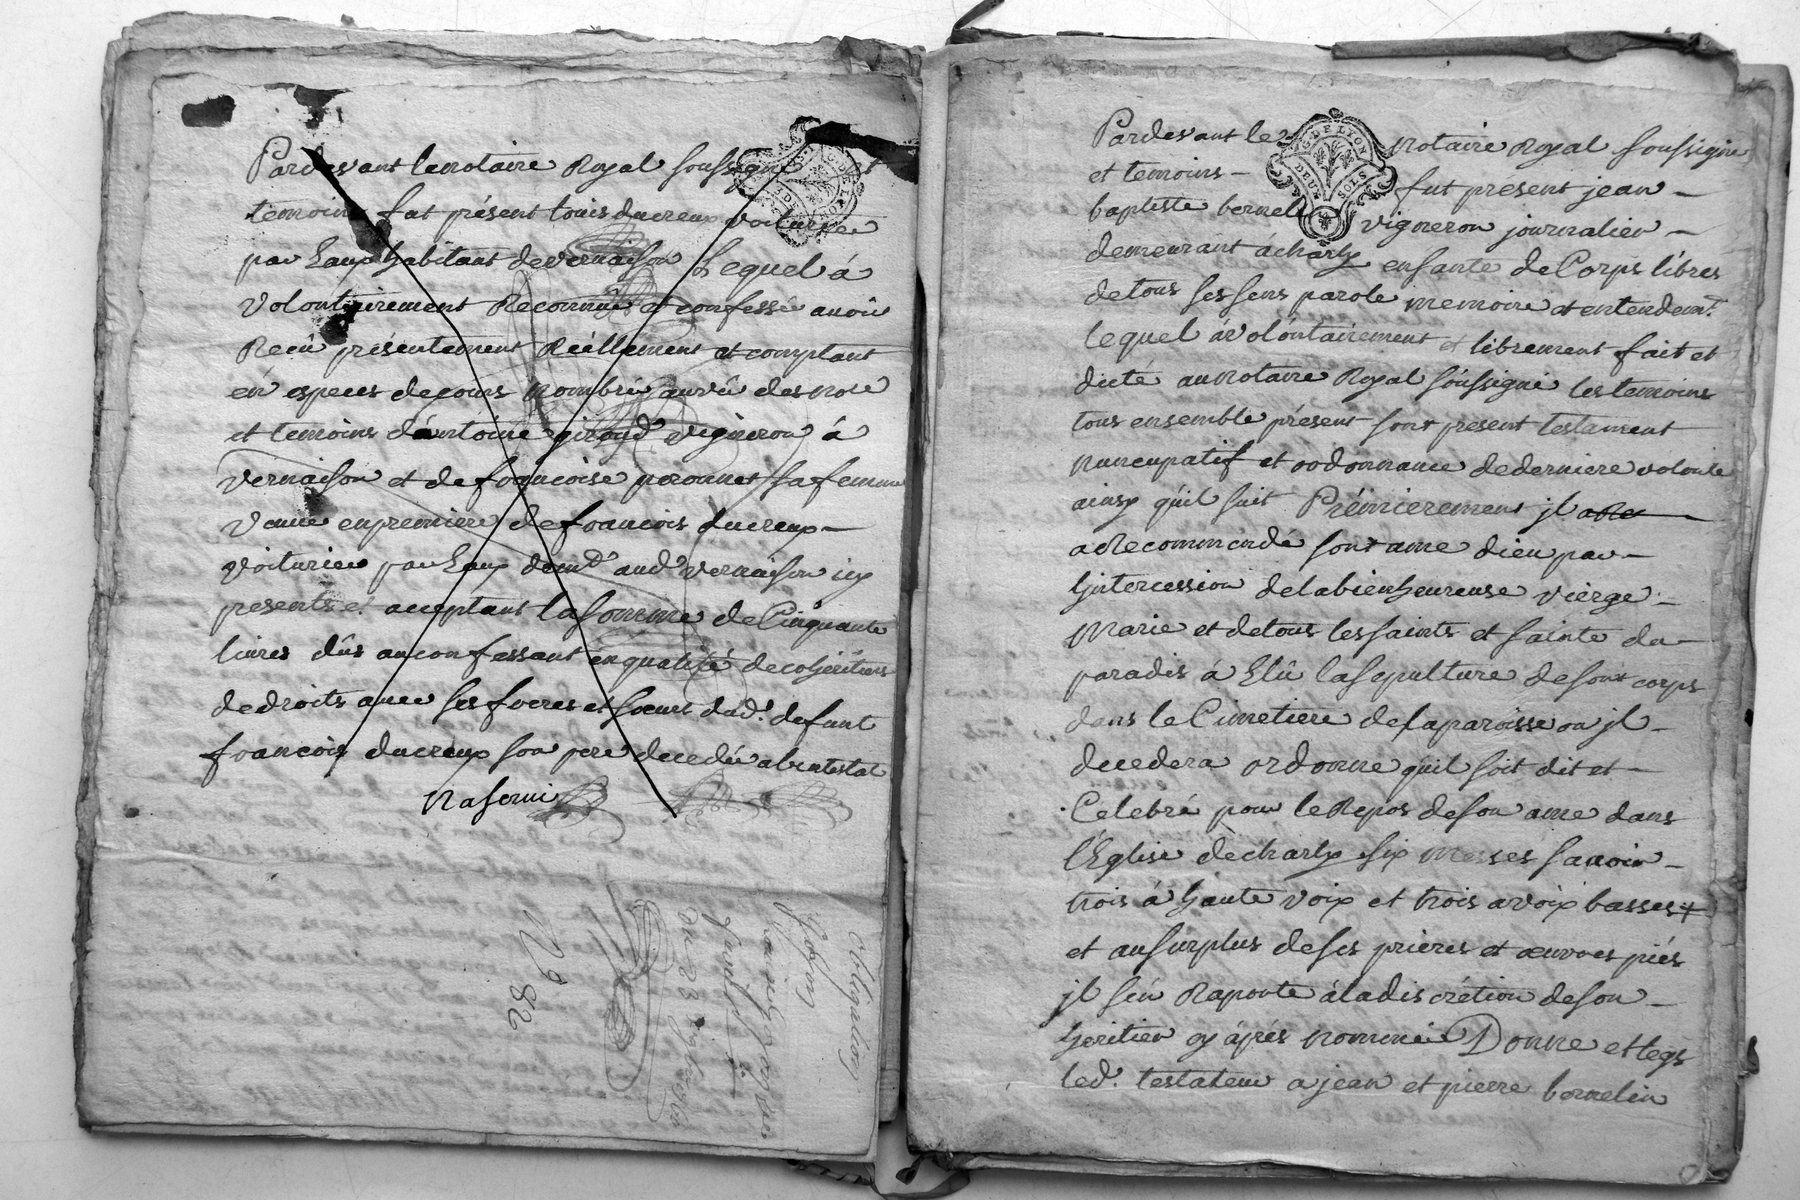 Pardevant le notaire Royal soussigné et
temoins fut présent louis ducreux voiturier
par Eaux habitant de vernaison Lequel á
volontairement Reconnû et confessé avoir
Receû présentement Réellement et comptant
én especes de cours nombré au vû des no.re
et temoins d'antoine giroud vigneron á
vernaison et de francoise peronnet sa femme
veuve en premiere de francois ducreux
voiturier par Eaux dem.t aud. vernaison icy
presents et acceptant la somme de Cinquante
livres dûs au confessant en qualité de cohéritiers
de droits avec ses freres et soeurs dud.t defunt
francois ducreux son pere decedé abintestat
N'a servi
obligation
du 23
N 9
82
Pardevant le notaire Royal soussigné
et temoins – fut present jean –
baptiste bernelin vigneron journalier –
demeurant á charly enfante de Corps libres
de tous ses sens parole memoire et entendem.t
lequel á volóntairement et librement fait et
dicté au notaire Royal soussigné les temoins
tous ensemble présent sont present testament
nuncupatif et ordonnance de derniere volonte
ainsy qu'il suit Prémierement jl
a Recommendé sont ame dieu par –
Lyntercession de la bienheureuse vierge –
Marie et de tous les saints et sainte du –
paradis á Elû la sepulture de sont corps
dans le Cimetiere de la paroisse ou jl –
decedera ordonne quil soit dit et –
Celebré pour le Repos de son ame dans
l'Eglise de charly six Messes savoir –
trois á haute voix et trois a voix basses +
et au surplus de ses prieres et oeuvres piés
jl s'en Raporte á la discrétion de son –
heritier cy áprés nommé Donne et legs
led.t testateur a jean et pierre bernelin
G. DE LYON
DEUX SOLS